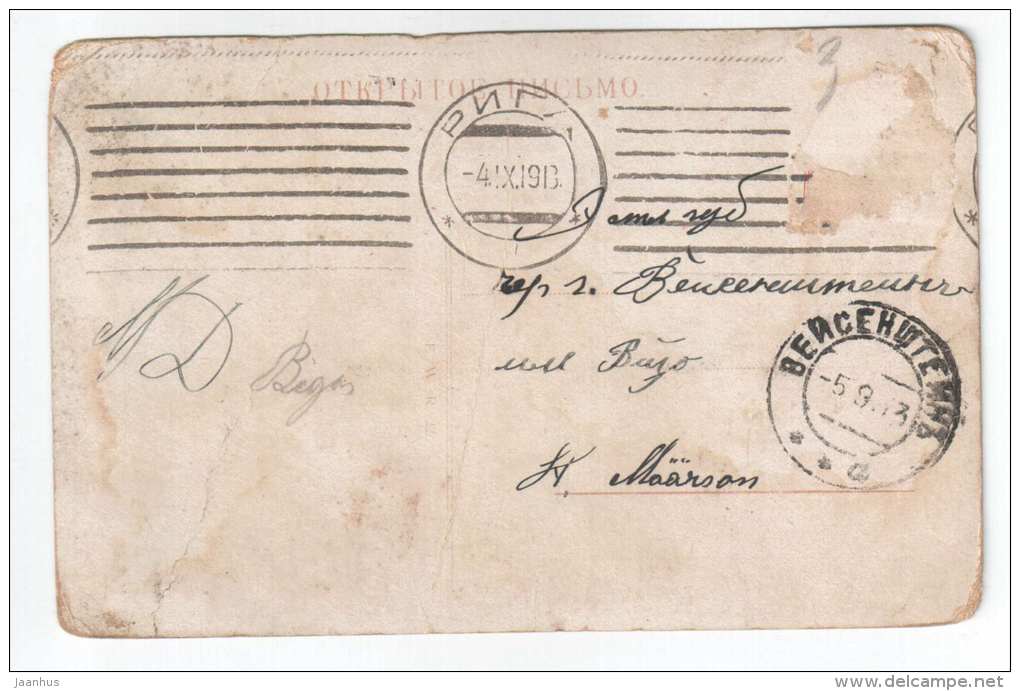 ОТКРЫТОЕ ПИСЬМО
РИГА
-4.IX.1913.
Эстл губ
чер г. Вейсенштейнъ
ВЕЙСЕНШТЕЙНЪ
-5.9.13
а
МД
мм Визо
H. Määrson
jaanhus
www.delcampe.net